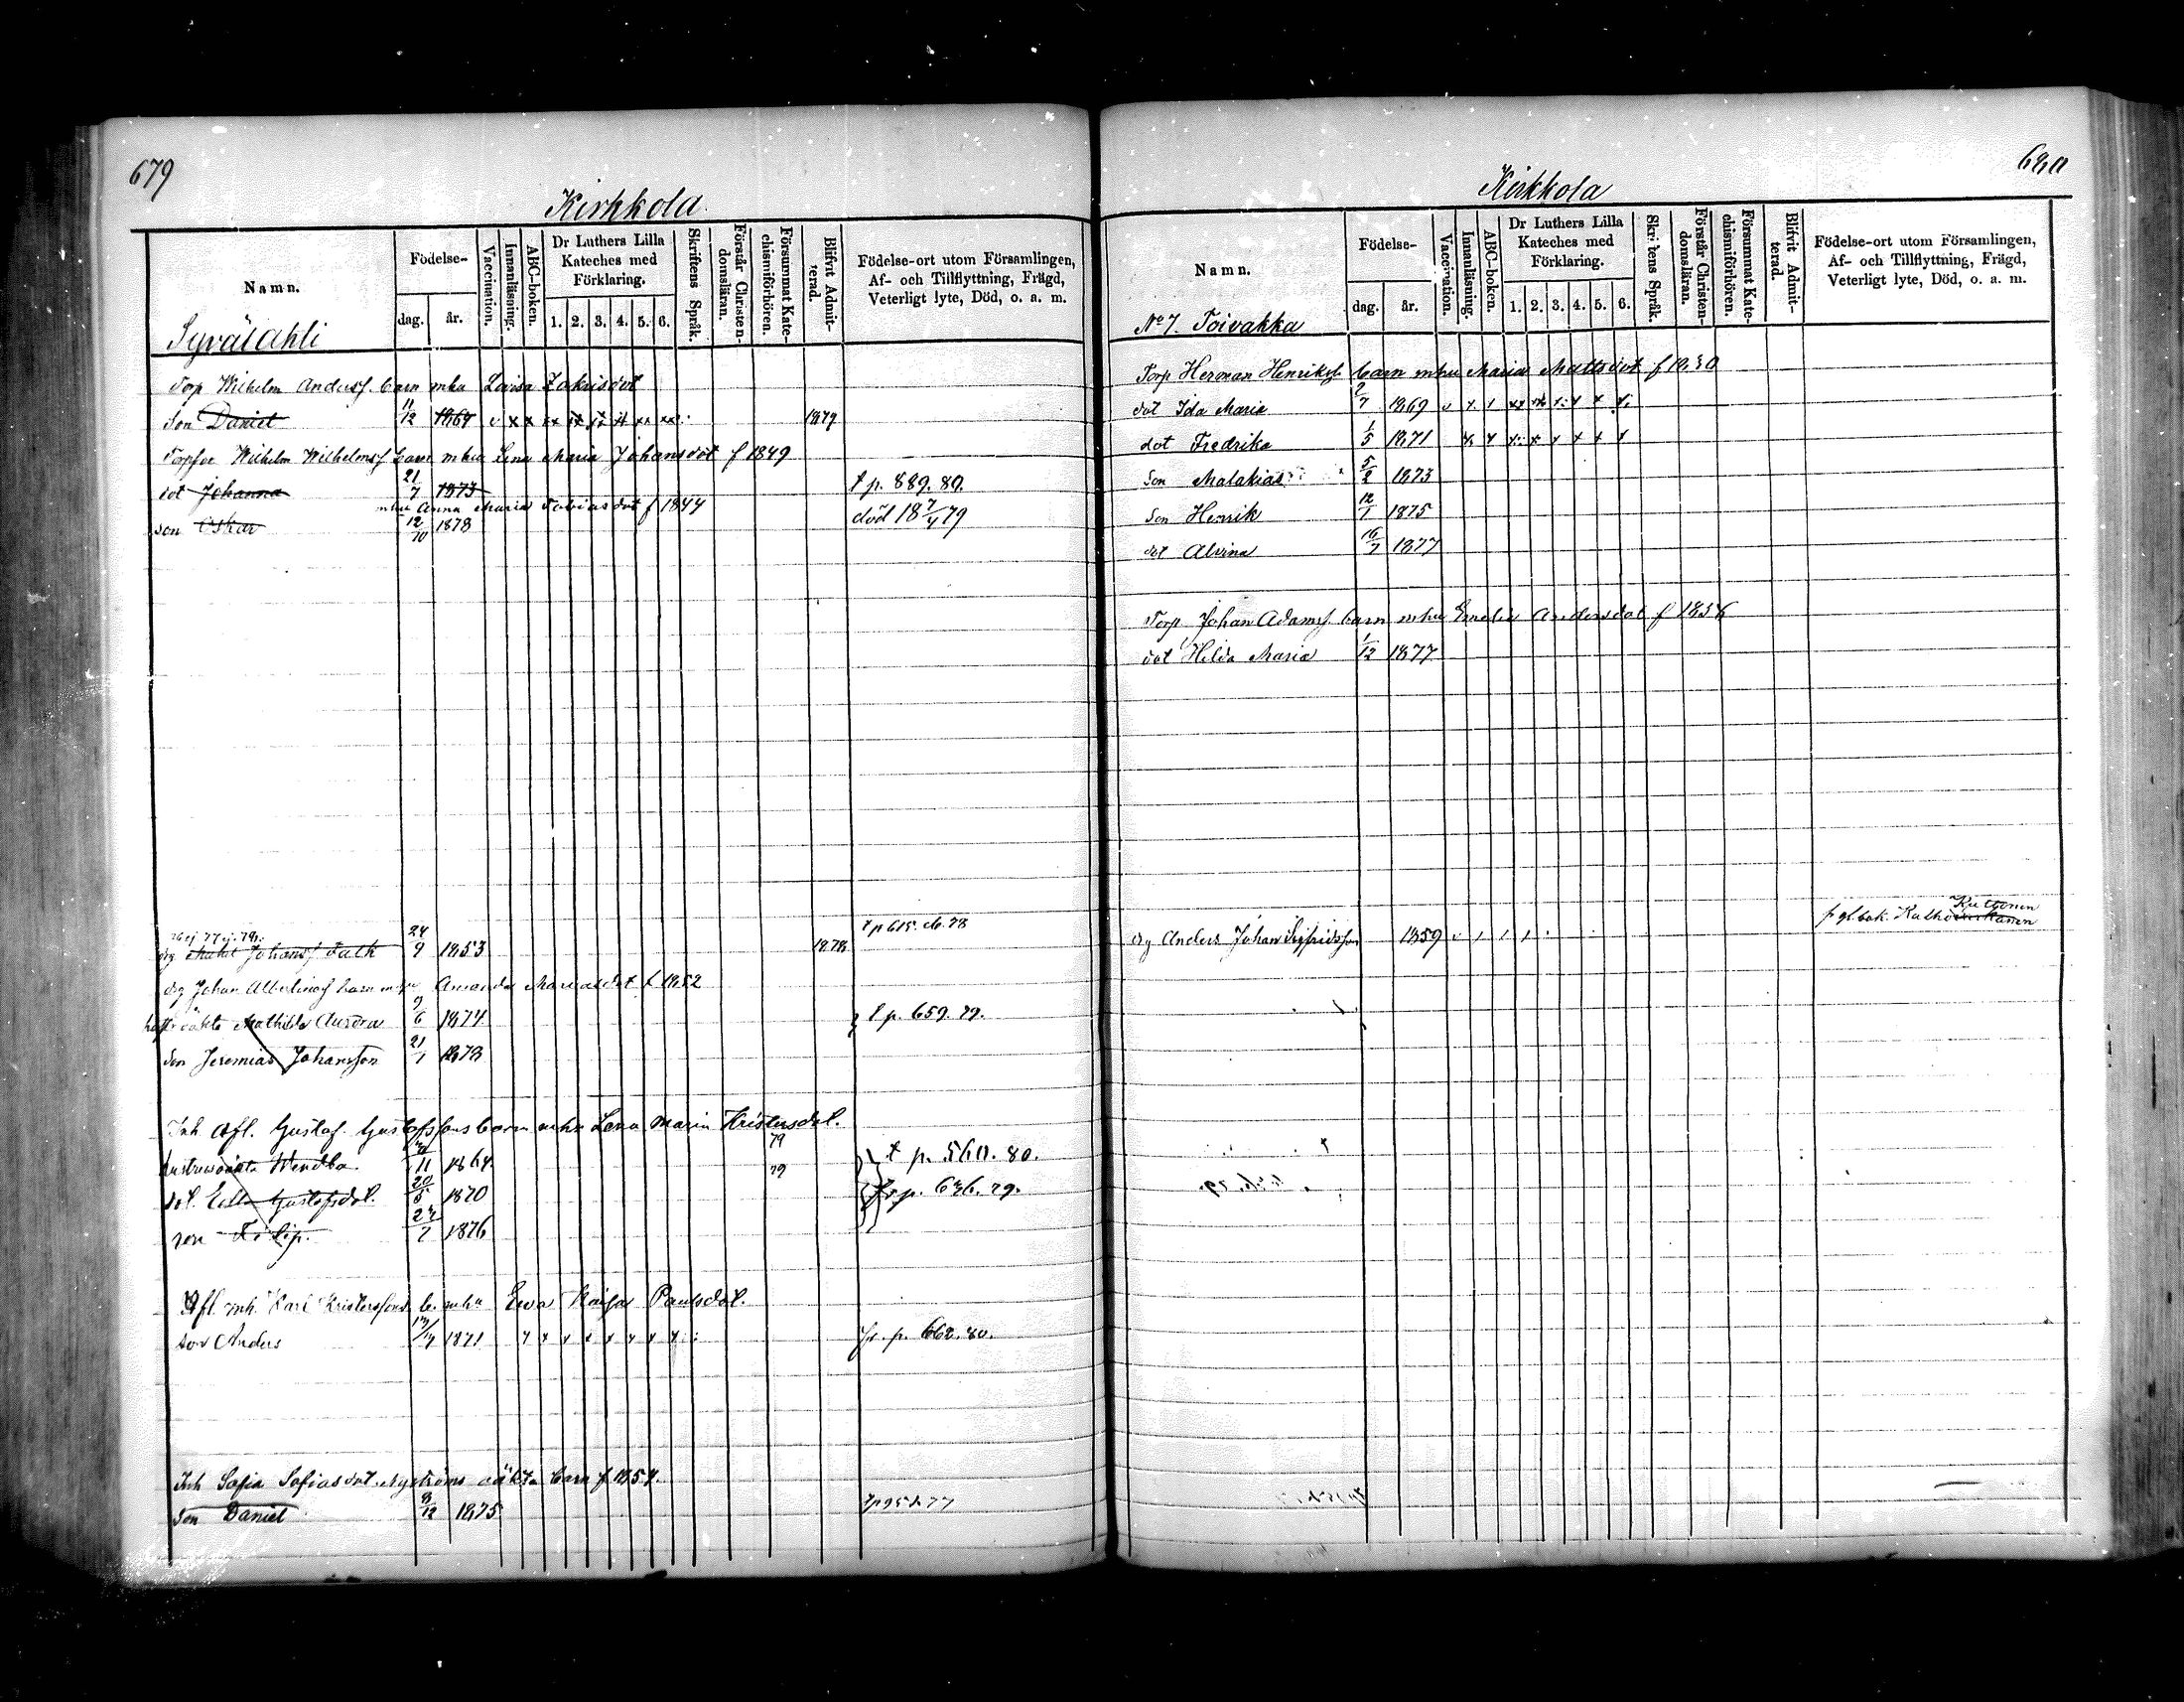 679
Kirkkola.
Namn.
Födelse-
dag. år.
Vaccination.
Innanläsning.
ABC-boken.
Dr Luthers Lilla
Kateches med
Förklaring.
1. 2. 3. 4. 5. 6.
Skriftens Språk.
Förstår Christen-
domsläran.
Försummat Kate-
chismiförhören.
Blifvit Admit-
terad.
Födelse-ort utom Församlingen,
Af- och Tillflyttning, Frägd,
Veterligt lyte, Död, o. a. m.
Syväl Ahli
Torp Wilhelm Andersf. barn mhu Lovisa Zakrisdot
Son Daniel 11/12 1864 v x x xx xx xx xx xx xx 1879
Torpfor Wilhelm Wilhelmsf barn mhu Lena Maria Johansdot f 1849
dot Johanna 21/7 1873 t p. 889. 80.
mhu Anna Maria Tobiasdot f 1844
son Oskar 12/10 1878 död 18 7/4 79
76 ej 77 ej. 78.
drg Johansf Falk 24/9 1853 1878 t p 615. 78
drg Johan barn mhu Amanda f 1852
Mathilda Aurora 9/6 1874 t p. 659. 79.
Son Jeremias Johansson 21/1 1878
Inh Afl. Gustaf Gustafssons barn mhu Lena Maria Kristersdot.
oäkta Wendla. 11 1864. 79 t p. 560. 80.
dot. Gustafsdot. 20/5 1870 79 fr p. 636. 79.
son Filip. 24/7 1876
Afl. inh. Karl Kristerssons b. mhu Ewa Kaisa Paulsdot.
son Anders 1871 fr. p. 662. 80.
Inh Sofia Sofiasdot. Nyströms oäkta barn f 1854.
Son Daniel 8/12 1875
680
Kirkkola
Namn.
Födelse-
dag. år.
Vaccination.
Innanläsning.
ABC-boken.
Dr Luthers Lilla
Kateches med
Förklaring.
1. 2. 3. 4. 5. 6.
Skriftens Språk.
Förstår Christen-
domsläran.
Försummat Kate-
chismiförhören.
Blifvit Admit-
terad.
Födelse-ort utom Församlingen,
Af- och Tillflyttning, Frägd,
Veterligt lyte, Död, o. a. m.
No 7. Toivakka
Torp Herman Henriksf barn mhu Maria Mattsdot f 1830
dot Ida Maria 2/7 1869
dot Fredrika 1/5 1871
Son Malakias 5/2 1873
Son Henrik 12/1 1875
dot Alvina 16/7 1877
Torp Johan Adamsf. barn mhu Emelia Andersdot f 1856
dot Hilda Maria 1/12 1877
Kuttonen
drg Anders Johan Sigfridsson 1859 f gl. bok.